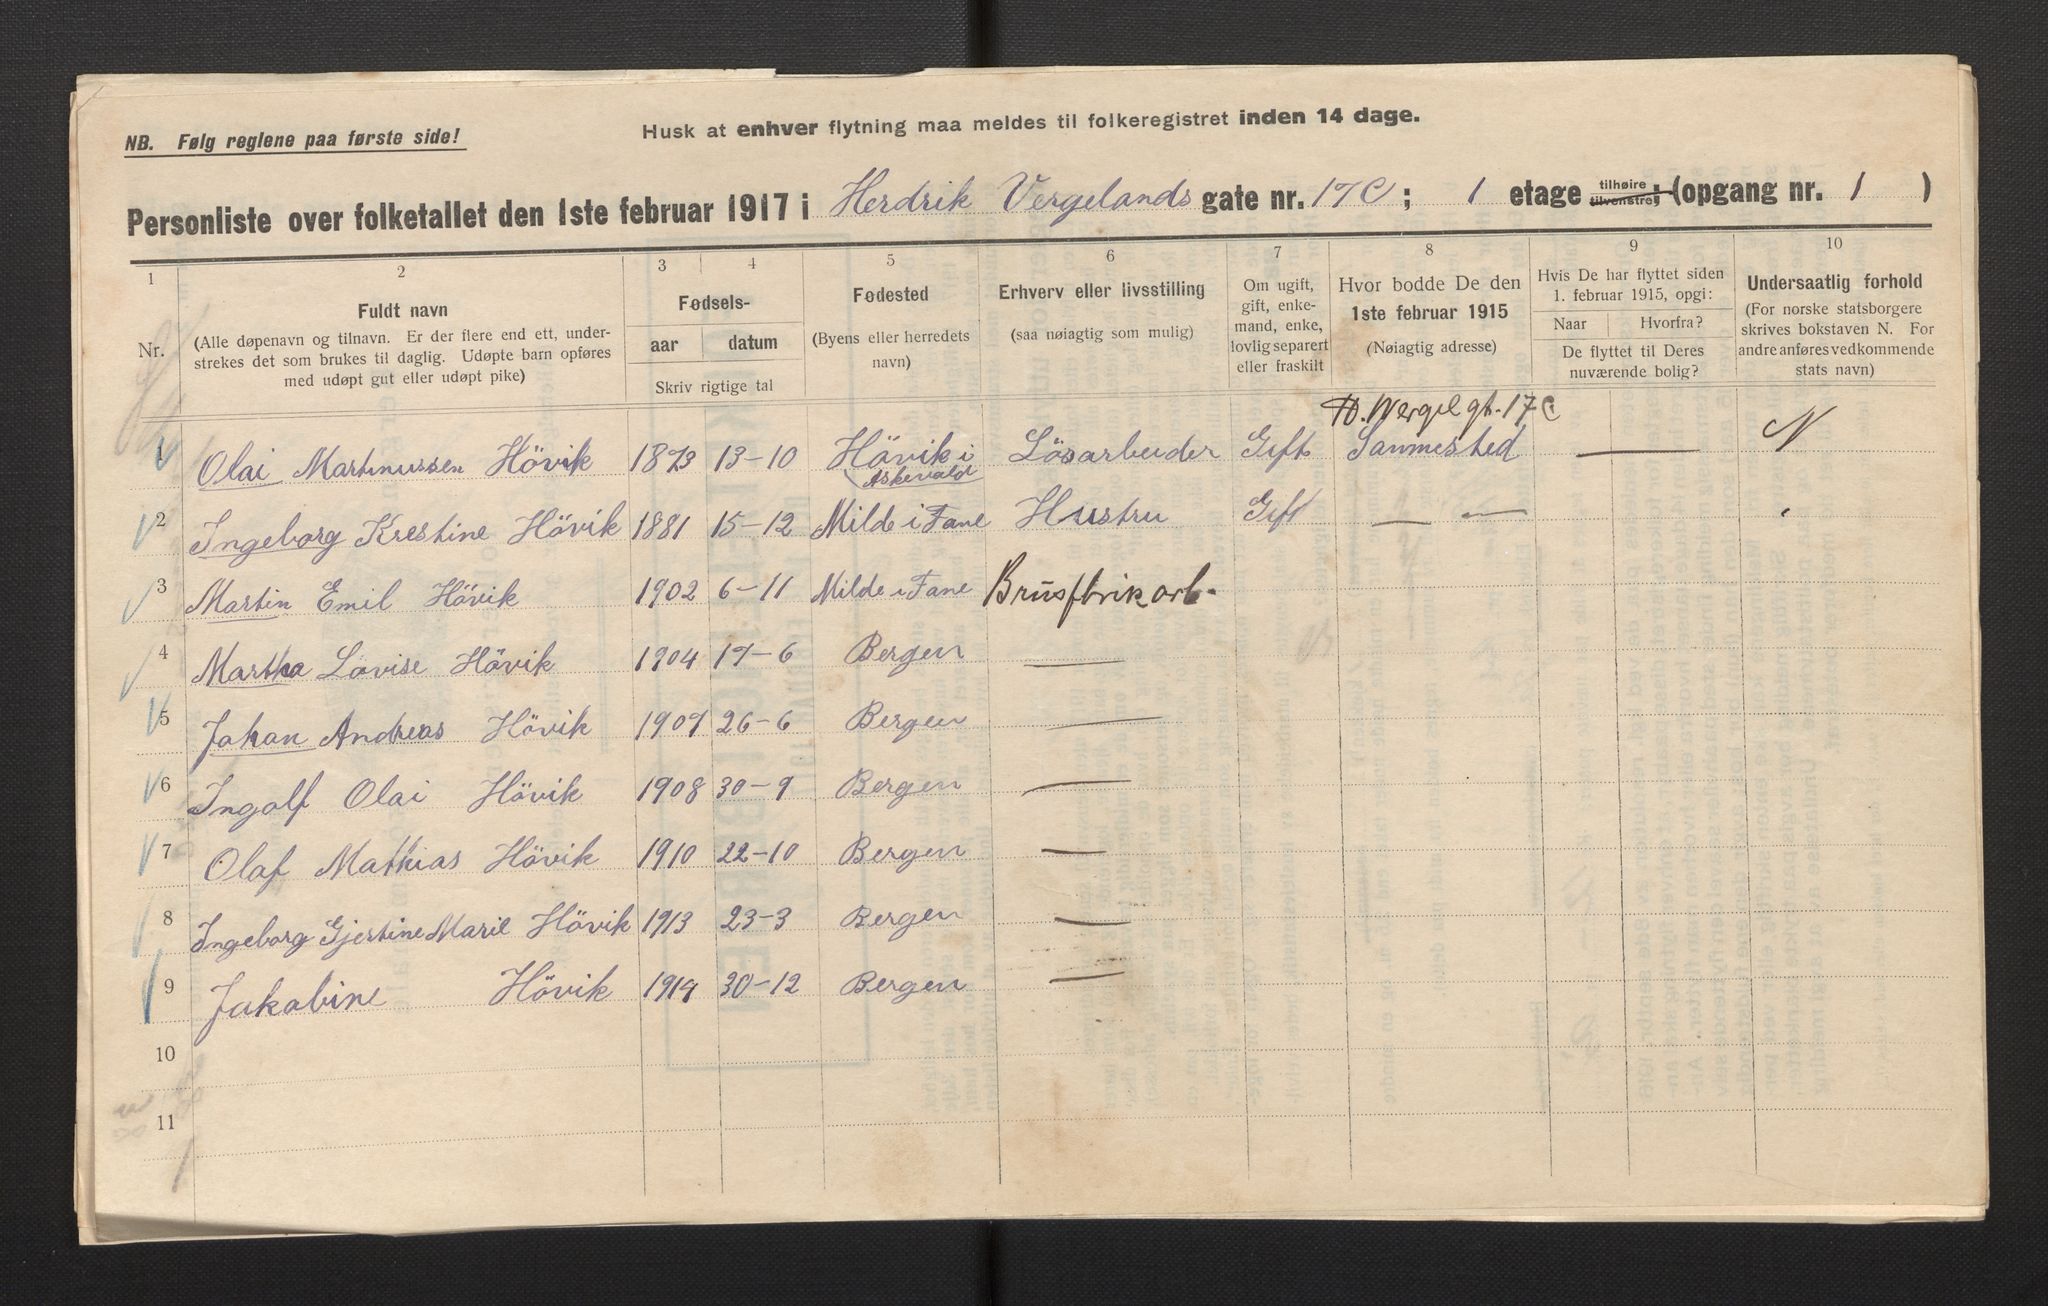 NB. Følg reglene paa første side!
Husk at enhver flytning maa meldes til folkeregistret inden 14 dage.
Personliste over folketallet den 1ste februar 1917 i Herdrik Vergelands gate nr. 17C; 1 etage tilhøire tilvenstre; (opgang nr. 1 )
1 2 3 4 5 6 7 8 9 10
Nr.
Fuldt navn
(Alle døpenavn og tilnavn. Er der flere end ett, under-
strekes det som brukes til daglig. Udøpte barn opføres
med udøpt gut eller udøpt pike)
Fødsels-
aar datum
Skriv rigtige tal
Fødested
(Byens eller herredets
navn)
Erhverv eller livsstilling
(saa nøiagtig som mulig)
Om ugift,
gift, enke-
mand, enke,
lovlig separert
eller fraskilt
Hvor bodde De den
1ste februar 1915
(Nøiagtig adresse)
Hvis De har flyttet siden
1. februar 1915, opgi:
Naar Hvorfra?
De flyttet til Deres
nuværende bolig?
Undersaatlig forhold
(For norske statsborgere
skrives bokstaven N. For
andre anføres vedkommende
stats navn)
H. Wergel gt. 17C
1 Olai Martinussen Hövik 1873 13-10 Hövik i Lösarbeider Gift Sammested — N
Askevold
2 Ingeborg Krestine Hövik 1881 15-12 Milde i Fane Hustru Gift — —
3 Martin Emil Hövik 1902 6-11 Milde i Fane Brusfbrikarb.
4 Martha Lovise Hövik 1904 17-6 Bergen —
5 Johan Andreas Hövik 1907 26-6 Bergen —
6 Ingolf Olai Hövik 1908 30-9 Bergen —
7 Olaf Mathias Hövik 1910 22-10 Bergen —
8 Ingeborg Gjertine Marie Hövik 1913 23-3 Bergen —
9 Jakobine Hövik 1914 30-12 Bergen —
10
11